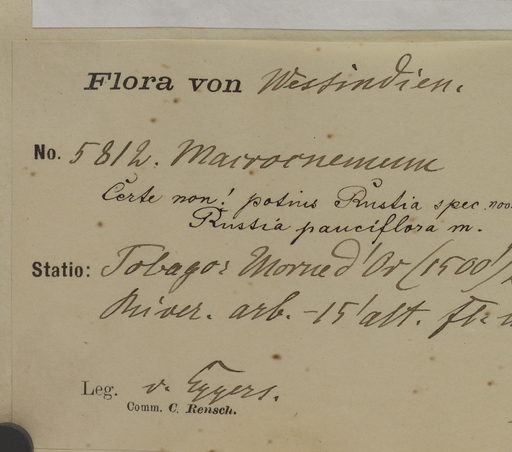 Flora von Westindien.
No. 5812. Macrocnemum
Certe non! potius Rustia spec. nov.
Rustia pauciflora m.
Statio: Tobago: Morne d'Or (1500')
River. arb. - 15' alt. fl:
Leg. v. Eggers.
Comm. C. Rensch.